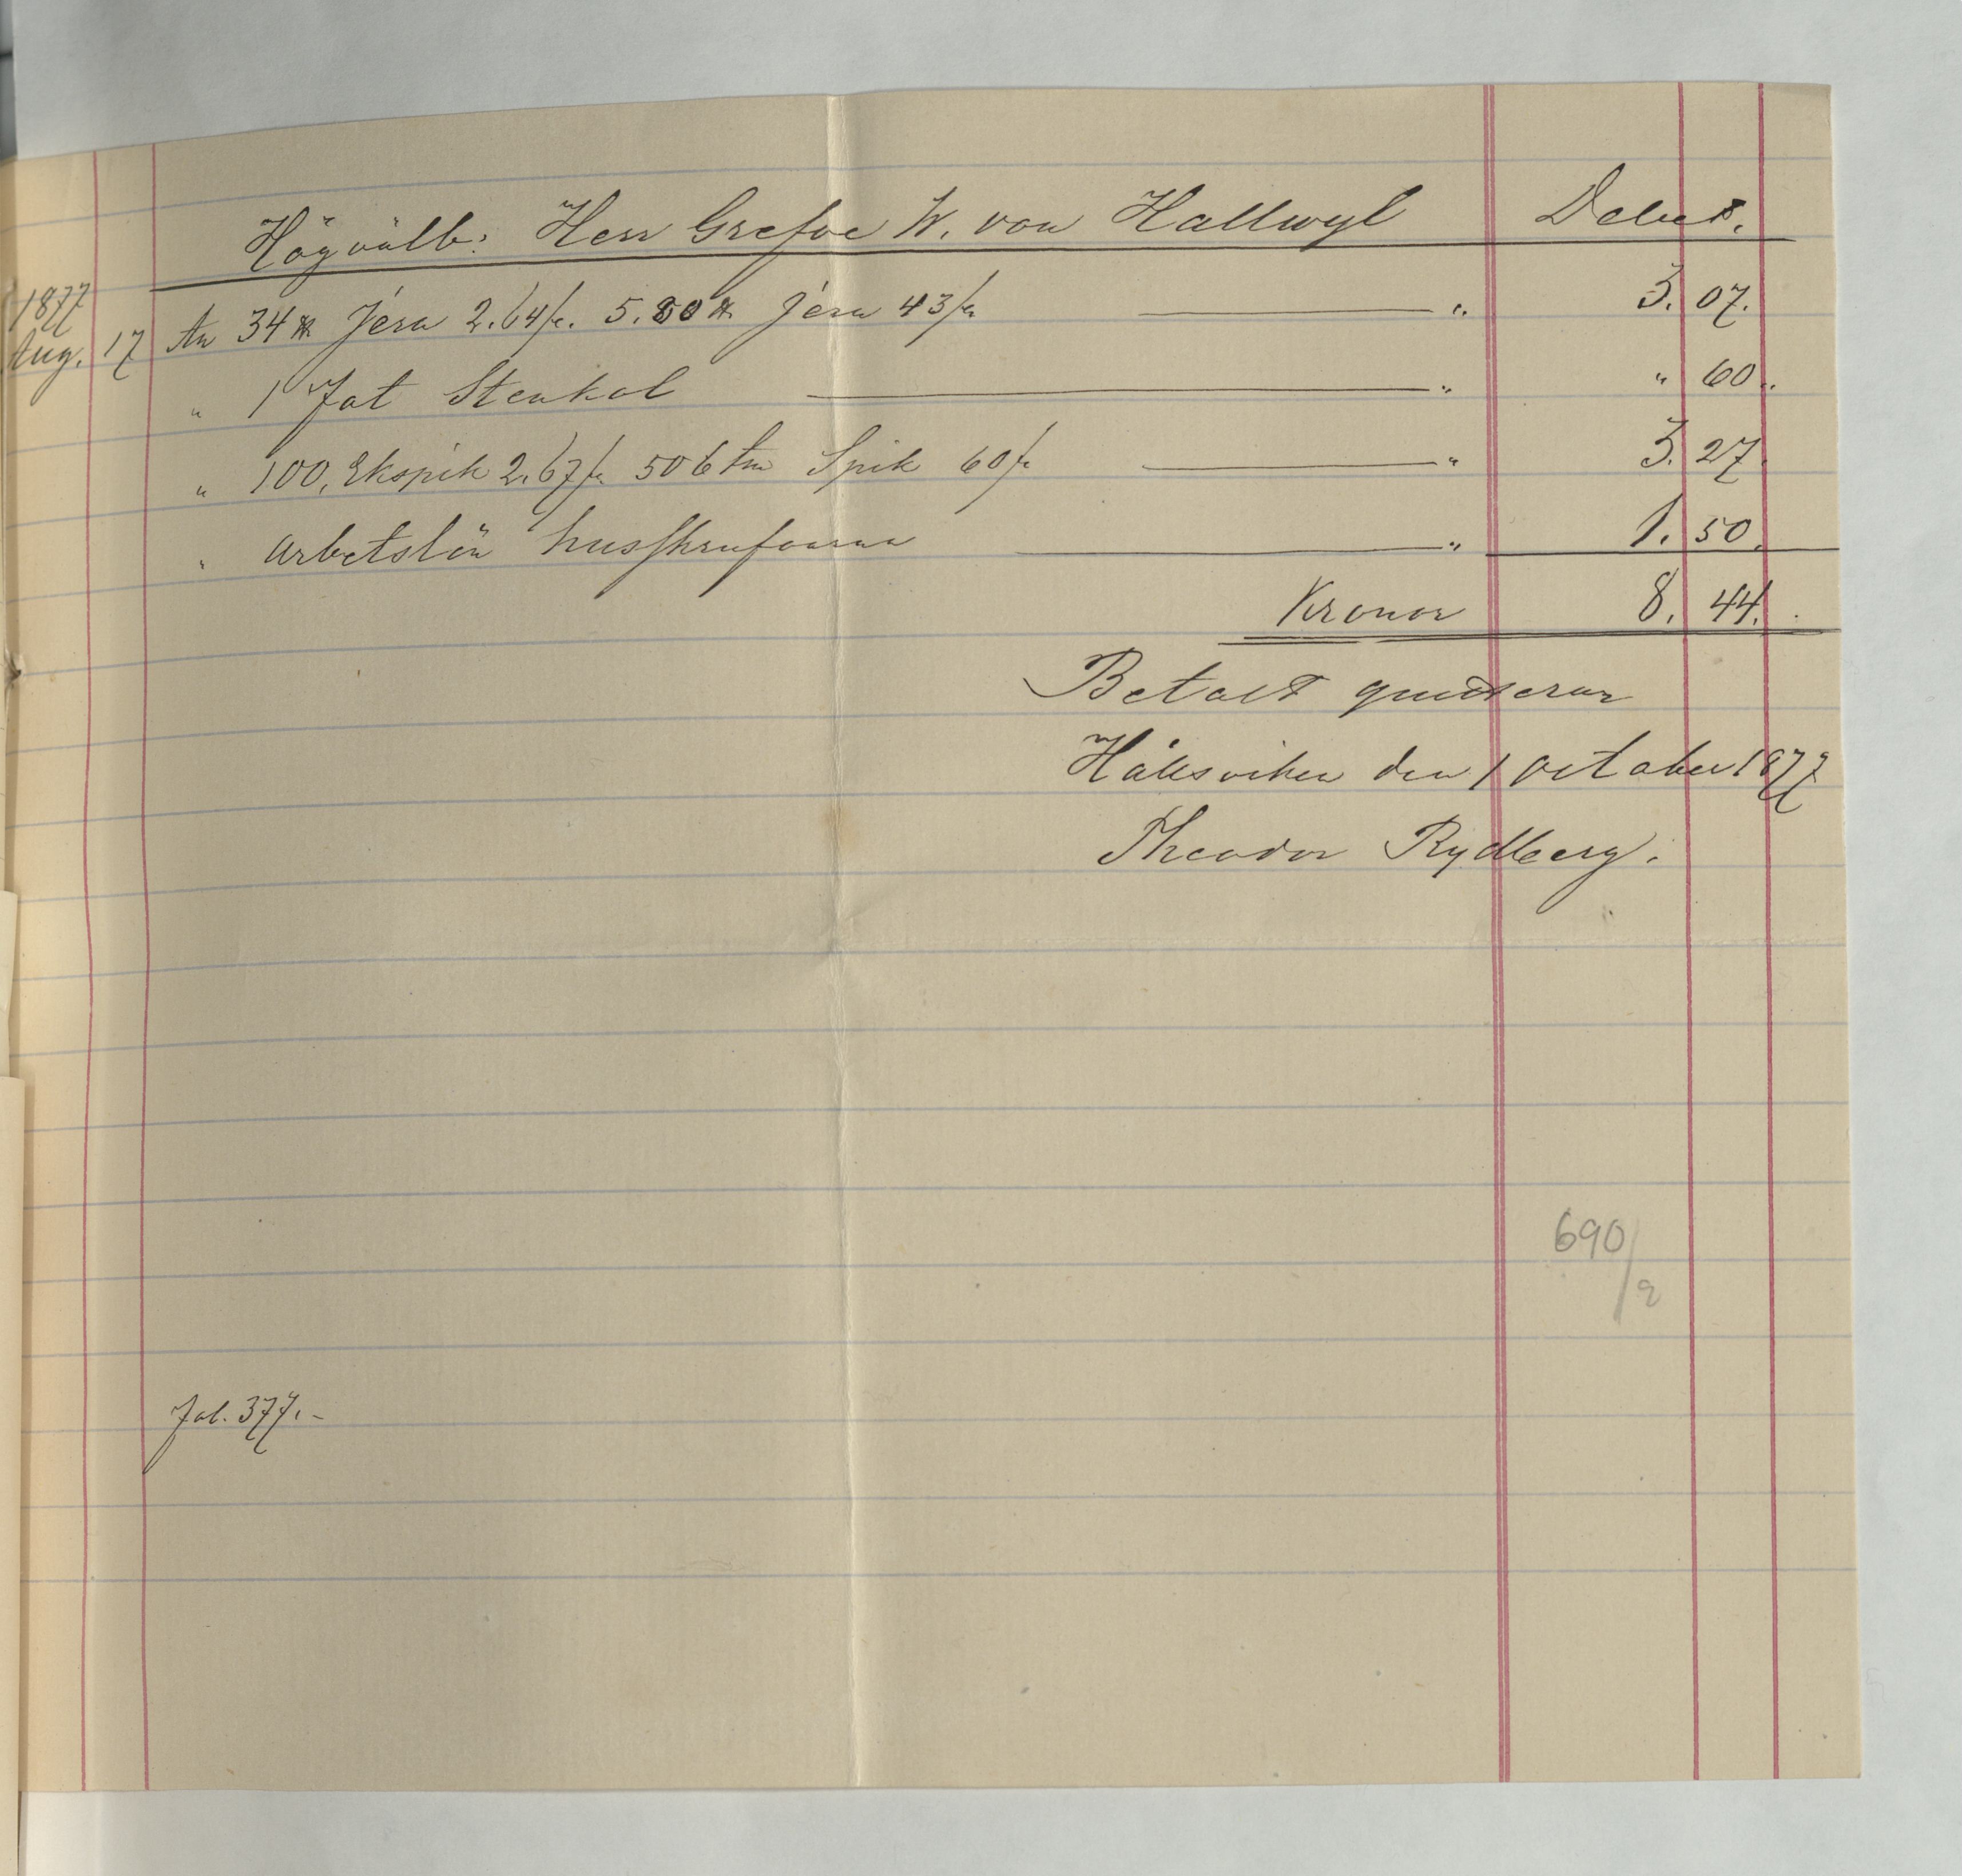 Högvälb: Herr Grefve W. von Hallwyl Debet.
1877
Aug. 17 An 34 ℔ Jern 2.64/. 5.80 ℔ Jern 43/. " 3. 07.
" 1 Fat Stenkol " " 60..
" 100, Ekspik 2.67/. 50 6 tm Spik 60/. " 3. 27.
" arbetslön " 1. 50.
Kronor 8. 44.
Betalt quitteras
den 1 october 1877
Theodor Rydberg.
690/2
Fol. 377.-